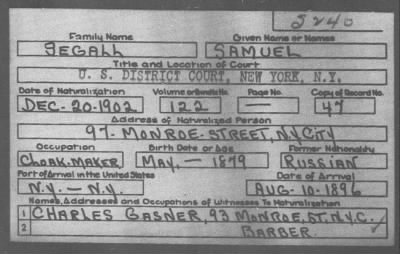 S240
Family Name Given Name or Names
SEGALL SAMUEL
Title and Location of Court
U. S. DISTRICT COURT, NEW YORK, N.Y.
Date of Naturalization Volume or Bundle No. Page No. Copy of Record No.
DEC-20-1902 122 — 47
Address of Naturalized Person
97-MONROE-STREET, N.Y.CITY
Occupation Birth Date or Age Former Nationality
CLOAK-MAKER MAY, — 1879 RUSSIAN
Port of Arrival in the United States Date of Arrival
N.Y. — N.Y. AUG-10-1896
Names, Addresses and Occupations of Witnesses To Naturalization
1 CHARLES GASNER, 93 MONROE, ST. N.Y.C.
2 BARBER.